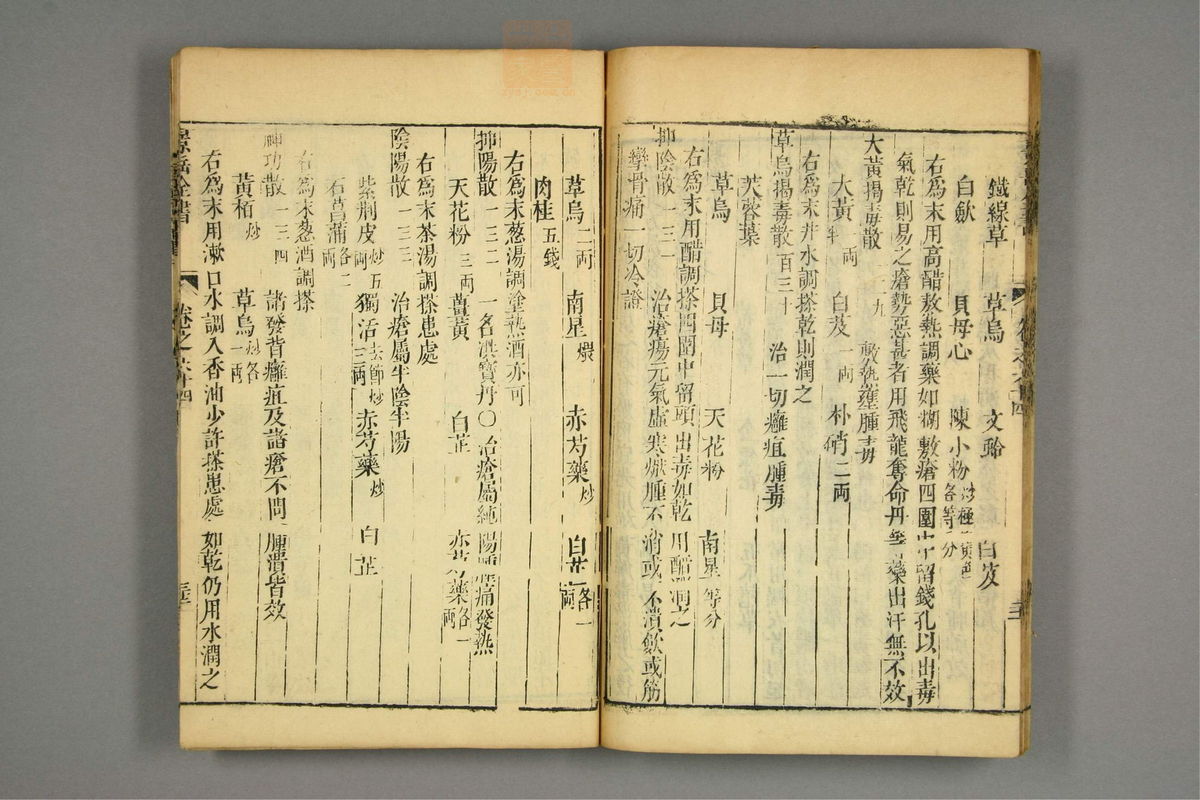 鐵線草 草烏 文蛤 白芨
白歛 貝母心 陳小粉炒極黃色各等分
右為末用高醋熬熱調藥如糊敷瘡四圍中留錢孔以出毒
氣乾則易之瘡勢惡甚者用飛龍奪命丹 藥出汗無不效
大黃搨毒散 二九 敷熱壅腫毒
大黃半兩 白芨一兩 朴硝二兩
右為末井水調搽乾則潤之
草烏揭毒散百三十 治一切癰疽腫毒
芙蓉葉
草烏 貝母 天花粉 南星等分
右為末用醋調搽四圍中留頭出毒如乾用醋潤之
抑陰散一三一 治瘡瘍元氣虛寒 腫不消或不潰歛或筋
攣骨痛一切冷證
草烏二兩 南星煨 赤芍藥炒 白芷各一兩
肉桂五錢
右為末葱湯調塗熱酒亦可
抑陽散一三二 一名洪寶丹〇治瘡屬純陽腫痛發熱
天花粉三兩 薑黃 白芷 赤芍藥各一兩
右為末茶湯調搽患處
陰陽散一三三 治瘡屬半陰半陽
紫荆皮炒五兩 獨活去節炒三兩 赤芍藥炒 白芷
石菖蒲各二兩
右為末葱酒調搽
神功散一三四 諸發背癰疽及諸瘡不問腫潰皆效
黃栢炒 草烏炒各一兩
右為末用漱口水調入香油少許搽患處如乾仍用水潤之
景岳全書 卷之六十四